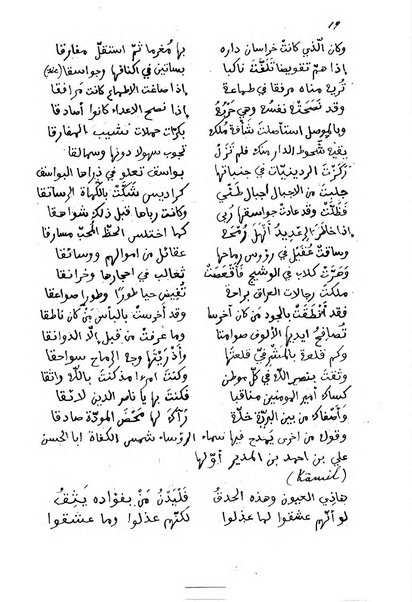 ١٩
وكان الّذي كانت خراسان داره بها مُغرما ثمّ استقلّ مفارقا
إذا همّ تقويضا تلفّتت ناكبا بساتين في اكنافها وجواسقا
تُريه مناه في طماعة إذا صافت الاطماع كانت مَرافقا
وقد نصحَتْه نفسُه وهي حَرّة إذا نصح الاعداء كانوا أصادقا
وبالموصل استأصلتَ شأفة مُلك بكرّات حملات تشيب المفارقا
شحوط الدار عنك فلم تزل تجوب سهولا دونها وسمالقا
رُكزت الردينيّات في جنباتها بواسق تعلو في ذراها البواسق
جلبتَ من الاجبال اجبال طيّئ كراديس شكّت بالكُماة الرساتقا
فظلّت وقد عادت جواسقها رُبى وكانت رباها قبل ذلك شواهقا
إذا خطر الرعديد أنهل رُمحه كما اختلس الحظّ المحبّ مسارقا
وساقت عُقَيل في رؤوس رماحها عقائل من اموالهم ووسائقا
وجرّت كلاب في الوشيج فأقعصت ثعالب في احجارها وخرانقا
ملكتَ رجالات العراق براحة تُفيض حيا طورًا وطورا صواعقا
وقد أنطقت بالجود من كان أخرسا وقد أخرست بالبأس من كان ناطقا
تُصافح أيديها الألوف صوامتا وما عرفتْ من قبل إلّا الدوانقا
وكم قلعة بالمشرفيّ قلعتها وأذريتها وجه الرماح سواحقا
وثقتَ بنصر اللّه في كلّ موطن وكنتَ امرءا مذ كنتَ باللّه واثقا
كساك أمير المومنين مناقبا فكنت بها يا ناصر الدين لائقا
وأصفاك من بين البريّة خلّة رآك لها مَحْضَ المودّة صادقا
وقوله من اخرى يمدح فيها سماء الرؤساء شمس الكفاة ابا الحسن
علي بن احمد بن المدبر أوّلها
(Kāmil)
هاذي العيون وهذه الحدقُ فليَدْنُ مَنْ بفؤاده يَثِقُ
لو أنّهم عشقوا لما عذلوا لكنّهم عذلوا وما عشقوا